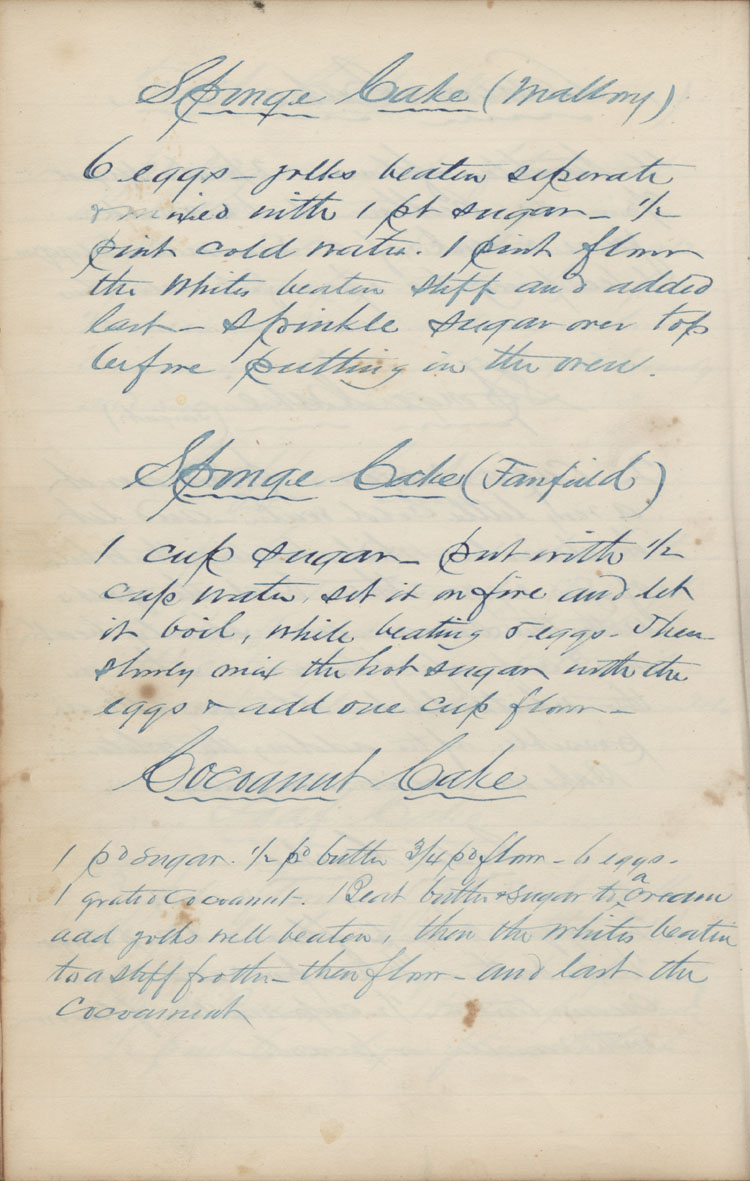 Sponge Cake (Mallory)
6 eggs - yolks beaten seperate
& mixed with 1 pt sugar - 1/2
pint cold water. 1 pint flour
the whites beaten stiff and added
last - sprinkle sugar over top
before putting in the oven.
Sponge Cake (Fanfield)
1 cup sugar - put with 1/2
cup water, set it on fire and let
it boil, while beating 5 eggs - Then
slowly mix the hot sugar with the
eggs & add one cup flour -
Cocoanut Cake
1 pd sugar. 1/2 pd butter 3/4 pd flour - 6 eggs -
1 grated cocoanut. Beat butter & sugar to a cream
add yolks well beaten, then the whites beaten
to a stiff froth - then flour - and last the
cocoanut